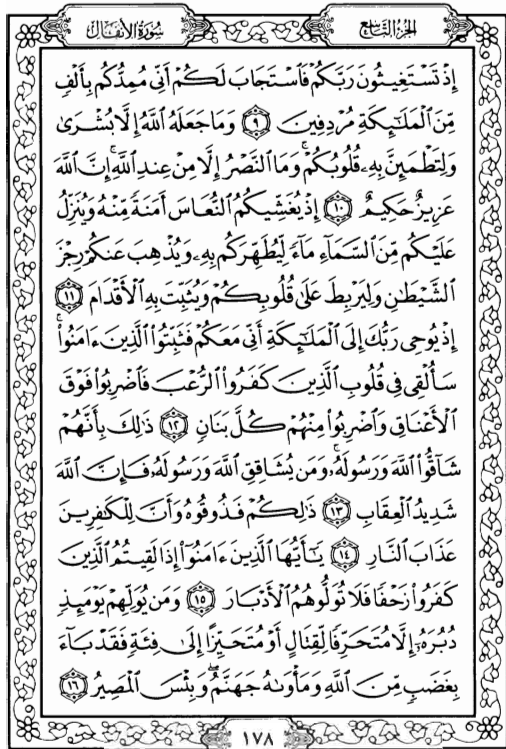 سُورَةُ الأَنفَال
الجُزْءُ التَّاسِعُ
إِذْ تَسْتَغِيثُونَ رَبَّكُمْ فَٱسْتَجَابَ لَكُمْ أَنِّي مُمِدُّكُم بِأَلْفٍ
مِّنَ ٱلْمَلَٰٓئِكَةِ مُرْدِفِينَ ٩ وَمَا جَعَلَهُ ٱللَّهُ إِلَّا بُشْرَىٰ
وَلِتَطْمَئِنَّ بِهِۦ قُلُوبُكُمْ ۚ وَمَا ٱلنَّصْرُ إِلَّا مِنْ عِندِ ٱللَّهِ ۚ إِنَّ ٱللَّهَ
عَزِيزٌ حَكِيمٌ ١٠ إِذْ يُغَشِّيكُمُ ٱلنُّعَاسَ أَمَنَةً مِّنْهُ وَيُنَزِّلُ
عَلَيْكُم مِّنَ ٱلسَّمَآءِ مَآءً لِّيُطَهِّرَكُم بِهِۦ وَيُذْهِبَ عَنكُمْ رِجْزَ
ٱلشَّيْطَٰنِ وَلِيَرْبِطَ عَلَىٰ قُلُوبِكُمْ وَيُثَبِّتَ بِهِ ٱلْأَقْدَامَ ١١
إِذْ يُوحِي رَبُّكَ إِلَى ٱلْمَلَٰٓئِكَةِ أَنِّي مَعَكُمْ فَثَبِّتُوا۟ ٱلَّذِينَ ءَامَنُوا۟ ۚ
سَأُلْقِي فِي قُلُوبِ ٱلَّذِينَ كَفَرُوا۟ ٱلرُّعْبَ فَٱضْرِبُوا۟ فَوْقَ
ٱلْأَعْنَاقِ وَٱضْرِبُوا۟ مِنْهُمْ كُلَّ بَنَانٍ ١٢ ذَٰلِكَ بِأَنَّهُمْ
شَآقُّوا۟ ٱللَّهَ وَرَسُولَهُۥ ۚ وَمَن يُشَاقِقِ ٱللَّهَ وَرَسُولَهُۥ فَإِنَّ ٱللَّهَ
شَدِيدُ ٱلْعِقَابِ ١٣ ذَٰلِكُمْ فَذُوقُوهُ وَأَنَّ لِلْكَٰفِرِينَ
عَذَابَ ٱلنَّارِ ١٤ يَٰٓأَيُّهَا ٱلَّذِينَ ءَامَنُوٓا۟ إِذَا لَقِيتُمُ ٱلَّذِينَ
كَفَرُوا۟ زَحْفًا فَلَا تُوَلُّوهُمُ ٱلْأَدْبَارَ ١٥ وَمَن يُوَلِّهِمْ يَوْمَئِذٍ
دُبُرَهُۥٓ إِلَّا مُتَحَرِّفًا لِّقِتَالٍ أَوْ مُتَحَيِّزًا إِلَىٰ فِئَةٍ فَقَدْ بَآءَ
بِغَضَبٍ مِّنَ ٱللَّهِ وَمَأْوَىٰهُ جَهَنَّمُ ۖ وَبِئْسَ ٱلْمَصِيرُ ١٦
١٧٨